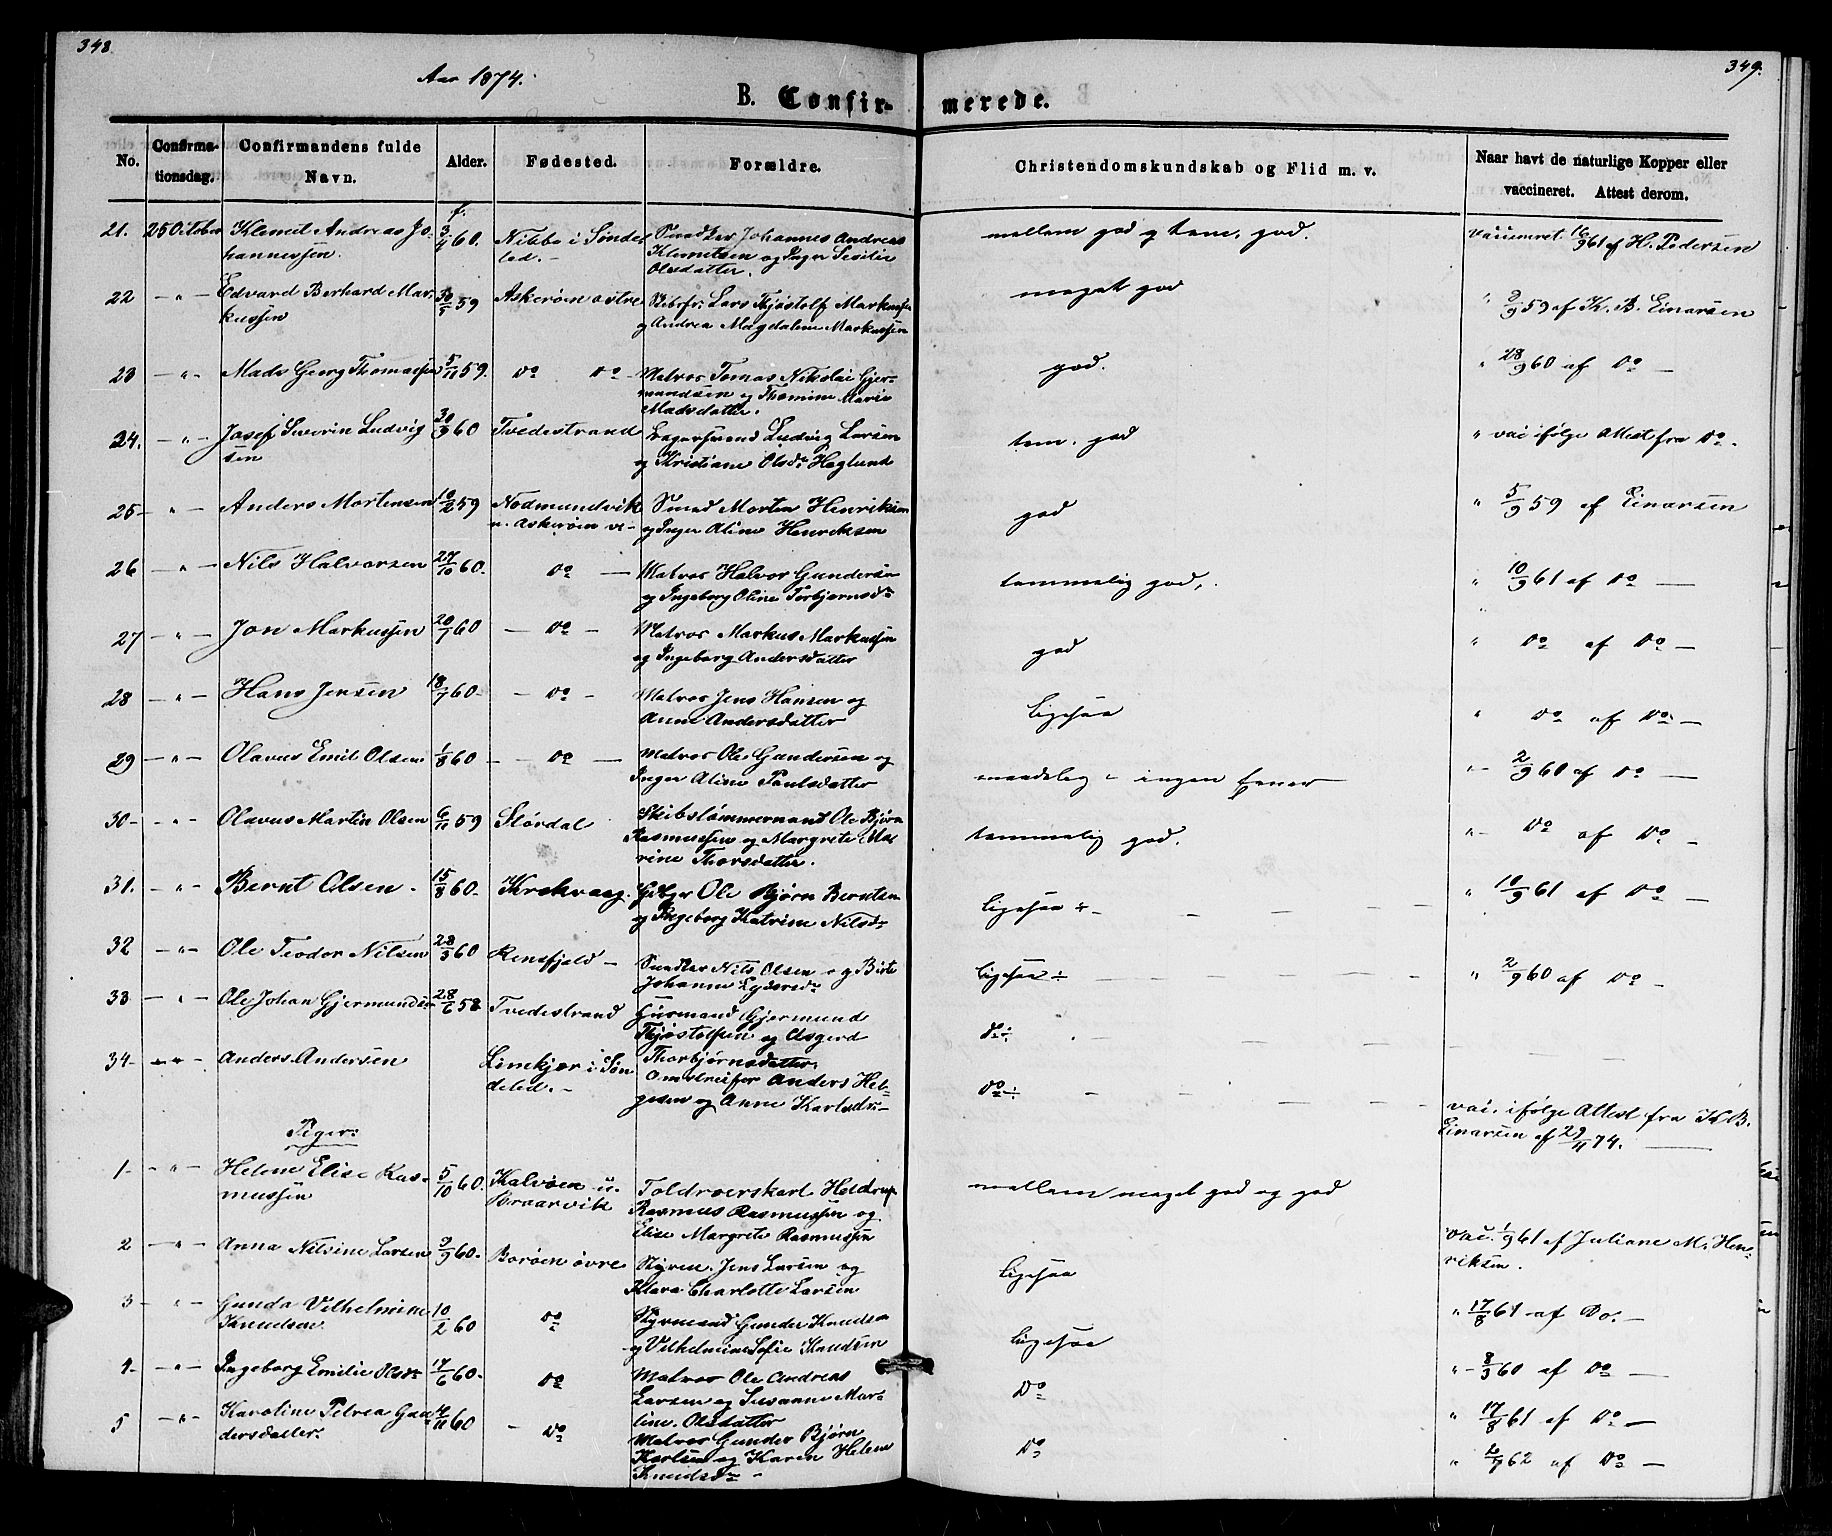 348
349.
Aar 1874.
B. Confir-
merede.
No.
Confirma-
tionsdag.
Confirmandens fulde
Navn.
Alder.
Fødested.
Forældre.
Christendomskundskab og Flid m. v.
Naar havt de naturlige Kopper eller
vaccineret. Attest derom.
f.
21. 25 October Klemet Andreas Jo- 3/4 60. i Sønde- Johannes Andreas mellem god og tem. god. vaccineret 16/9 61 af H. Pedersen
hannessen. led. - Klemetsen og Inger Sesilie
Olsdatter.
22 - " - Edvard Berhard Mar- 30/5 59 Askerøen østre Lars Thjøstolf Markussen meget god " 2/9 59 af K. B. Einarsen
kussen og Andrea Magdalene Markussen
23 - " - Mads Georg Thomassen 5/11 59. Do Do Matros Tomas Nikolai Gjer- god. " 28/9 60 af Do -
mundsen og Thomine Marie
Madsdatter.
24. - " - Josef Severin Ludvig 30/9 60 Tvedestrand Ludvig Larsen tem. god " vac ifølge Attest fra Do -
sen og Kristiane Olsdr Høglund
25 - " - Anders Mortensen 10/2 59 Nodmundvik Smed Morten Henriksen god " 5/9 59 af Einarsen
u. Askerøen ve- og Inger Aline Henriksen
26 - " - Nils Halvorsen 27/10 60. Do - Matros Halvor Gundersen temmelig god. " 10/9 61 af Do -
og Ingeborg Oline Torbjørnsdr
27 - " - Jon Markussen 20/7 60 - Do - Matros Markus Markussen god " Do af Do -
og Ingeborg Andersdatter
28 - " - Hans Jensen 18/7 60 - - Do - Matros Jens Hansen og ligesaa " Do af Do -
Anne Andersdatter
29 - " - Olavus Emil Olsen 1/8 60 - - Do - Matros Ole Gundersen og maadelig - ingen Evner " - 2/9 60 af Do -
Inger Aline Paulsdatter
30 - - " - Olavus Martin Olsen 6/11 59 Størdal Skibstømmermand Ole Bjørn temmelig god. " - Do af Do -
Rasmussen og Margrete Ma-
rine Thorsdatter.
31. - " - Bernt Olsen - 15/8 60 - Krokvaag. Ole Bjørn Berntsen ligesaa + - " 10/9 61 af Do -
og Ingeborg Katrine Nilsdr
32 - " - Ole Teodor Nilsen 28/3 60 Rensfjeld - Nils Olsen og Birte ligesaa ÷ " 2/9 60 af Do -
Johanne
33 - " - Ole Johan Gjermundsen 28/6 58 Tvedestrand Gjermund Do ÷
Thjøstolfsen og Asgerd
Thorbjørnsdatter.
34 - - " - Anders Andersen Limkjær i Søn Omstreifer Anders Hel- Do ÷
deled. - gesen og Anne Karlsdr - vac. ifølge Attest fra K B.
Einarsen af 29/11 74. -
Piger:
1 - - " - Helene Elise Ras- 5/10 60. Kalvøen u. Toldroerskarl Heldrup mellem meget god og god
mussen Braarvik Rasmus Rasmussen og
Elise Margrete Rasmussen
2 - " - Anna Nilsine Larsen 3/9 60 - Borøen øvre Styrm. Jens Larsen og ligesaa vac. 1/9 61 af Juliane M. Hen-
Klara Charlotte Larsen riksen.
3 - " - Gunda Vilhelmine 10/2 60 Do Styrmand Gunder Knudsen ligesaa " 17/8 61 af Do. -
Knudsen og Vilhelmine Sofie Knudsen
4 - - " - Ingeborg Emilie Olsdr 17/6 60 - Do Matros Ole Andreas Do " - 8/9 60 af Do -
Larsen og Susanne Mar-
tine Olsdatter
5 - " - Karoline Petrea Gun- 4/11 60 - Do Matros Gunder Bjørn Do " 17/8 61 af Do -
dersdatter. Karlsen og Karen Helene
Knudsdr - " 2/9 62 af Do -